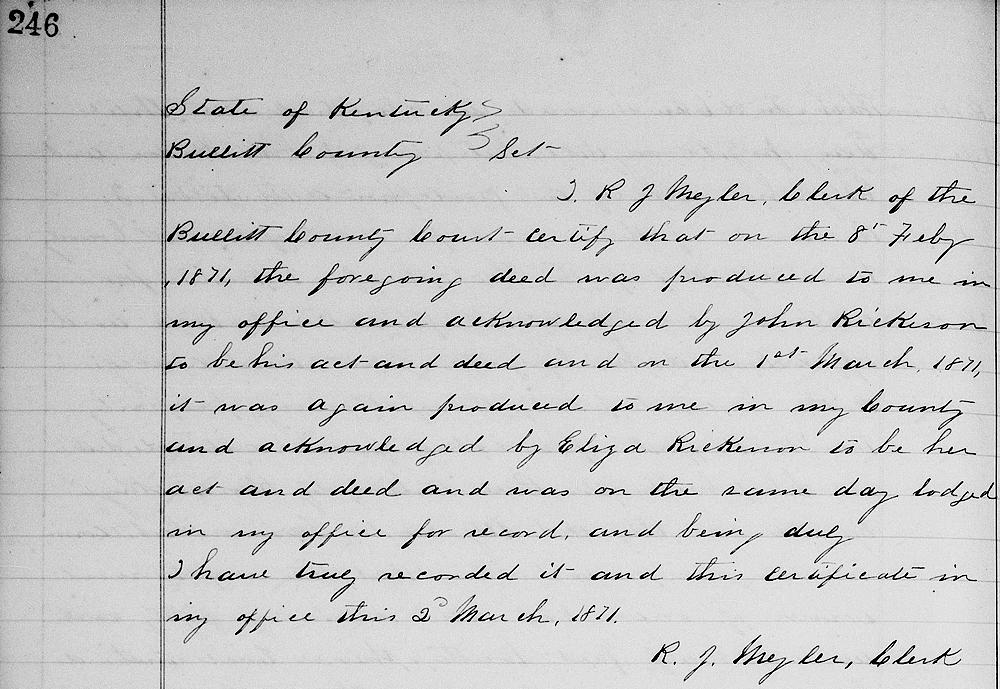 246
State of Kentucky
Bullitt County Sct
I. R J Meyler, Clerk of the
Bullitt County Court certify that on the 8th Feby
,1871, the foregoing deed was produced to me in
my office and acknowledged by John Rickerson
to be his act and deed and on the 1st March, 1871,
it was again produced to me in my County
and acknowledged by Eliza Rickerson to be her
act and deed and was on the same day lodged
in my office for record, and being duly
I have truly recorded it and this certificate in
my office this 2d March, 1871.
R. J. Meyler, Clerk